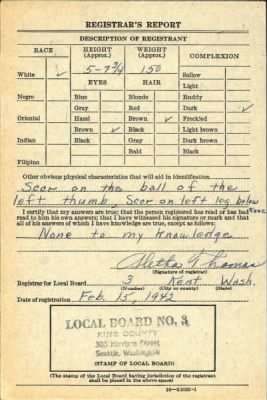 REGISTRAR'S REPORT
DESCRIPTION OF REGISTRANT
RACE HEIGHT (Approx.) WEIGHT (Approx.) COMPLEXION
5-7 3/4 150
White ✓ Sallow
EYES HAIR Light
Negro Blue Blonde Ruddy
Gray Red Dark ✓
Oriental Hazel Brown Freckled
Brown ✓ Black ✓ Light brown
Indian Black Gray Dark brown
Bald Black
Filipino
Other obvious physical characteristics that will aid in identification
Scar on the ball of the
left thumb, Scar on left leg below knee
I certify that my answers are true; that the person registered has read or has had
read to him his own answers; that I have witnessed his signature or mark and that
all of his answers of which I have knowledge are true, except as follows:
None to my Knowledge
Thomas
(Signature of registrar)
Registrar for Local Board 3 Kent Wash.
(Number) (City or county) (State)
Date of registration Feb. 15, 1942
LOCAL BOARD NO. 3
KING COUNTY
Seattle, Washington
(STAMP OF LOCAL BOARD)
(The stamp of the Local Board having jurisdiction of the registrant
shall be placed in the above space)